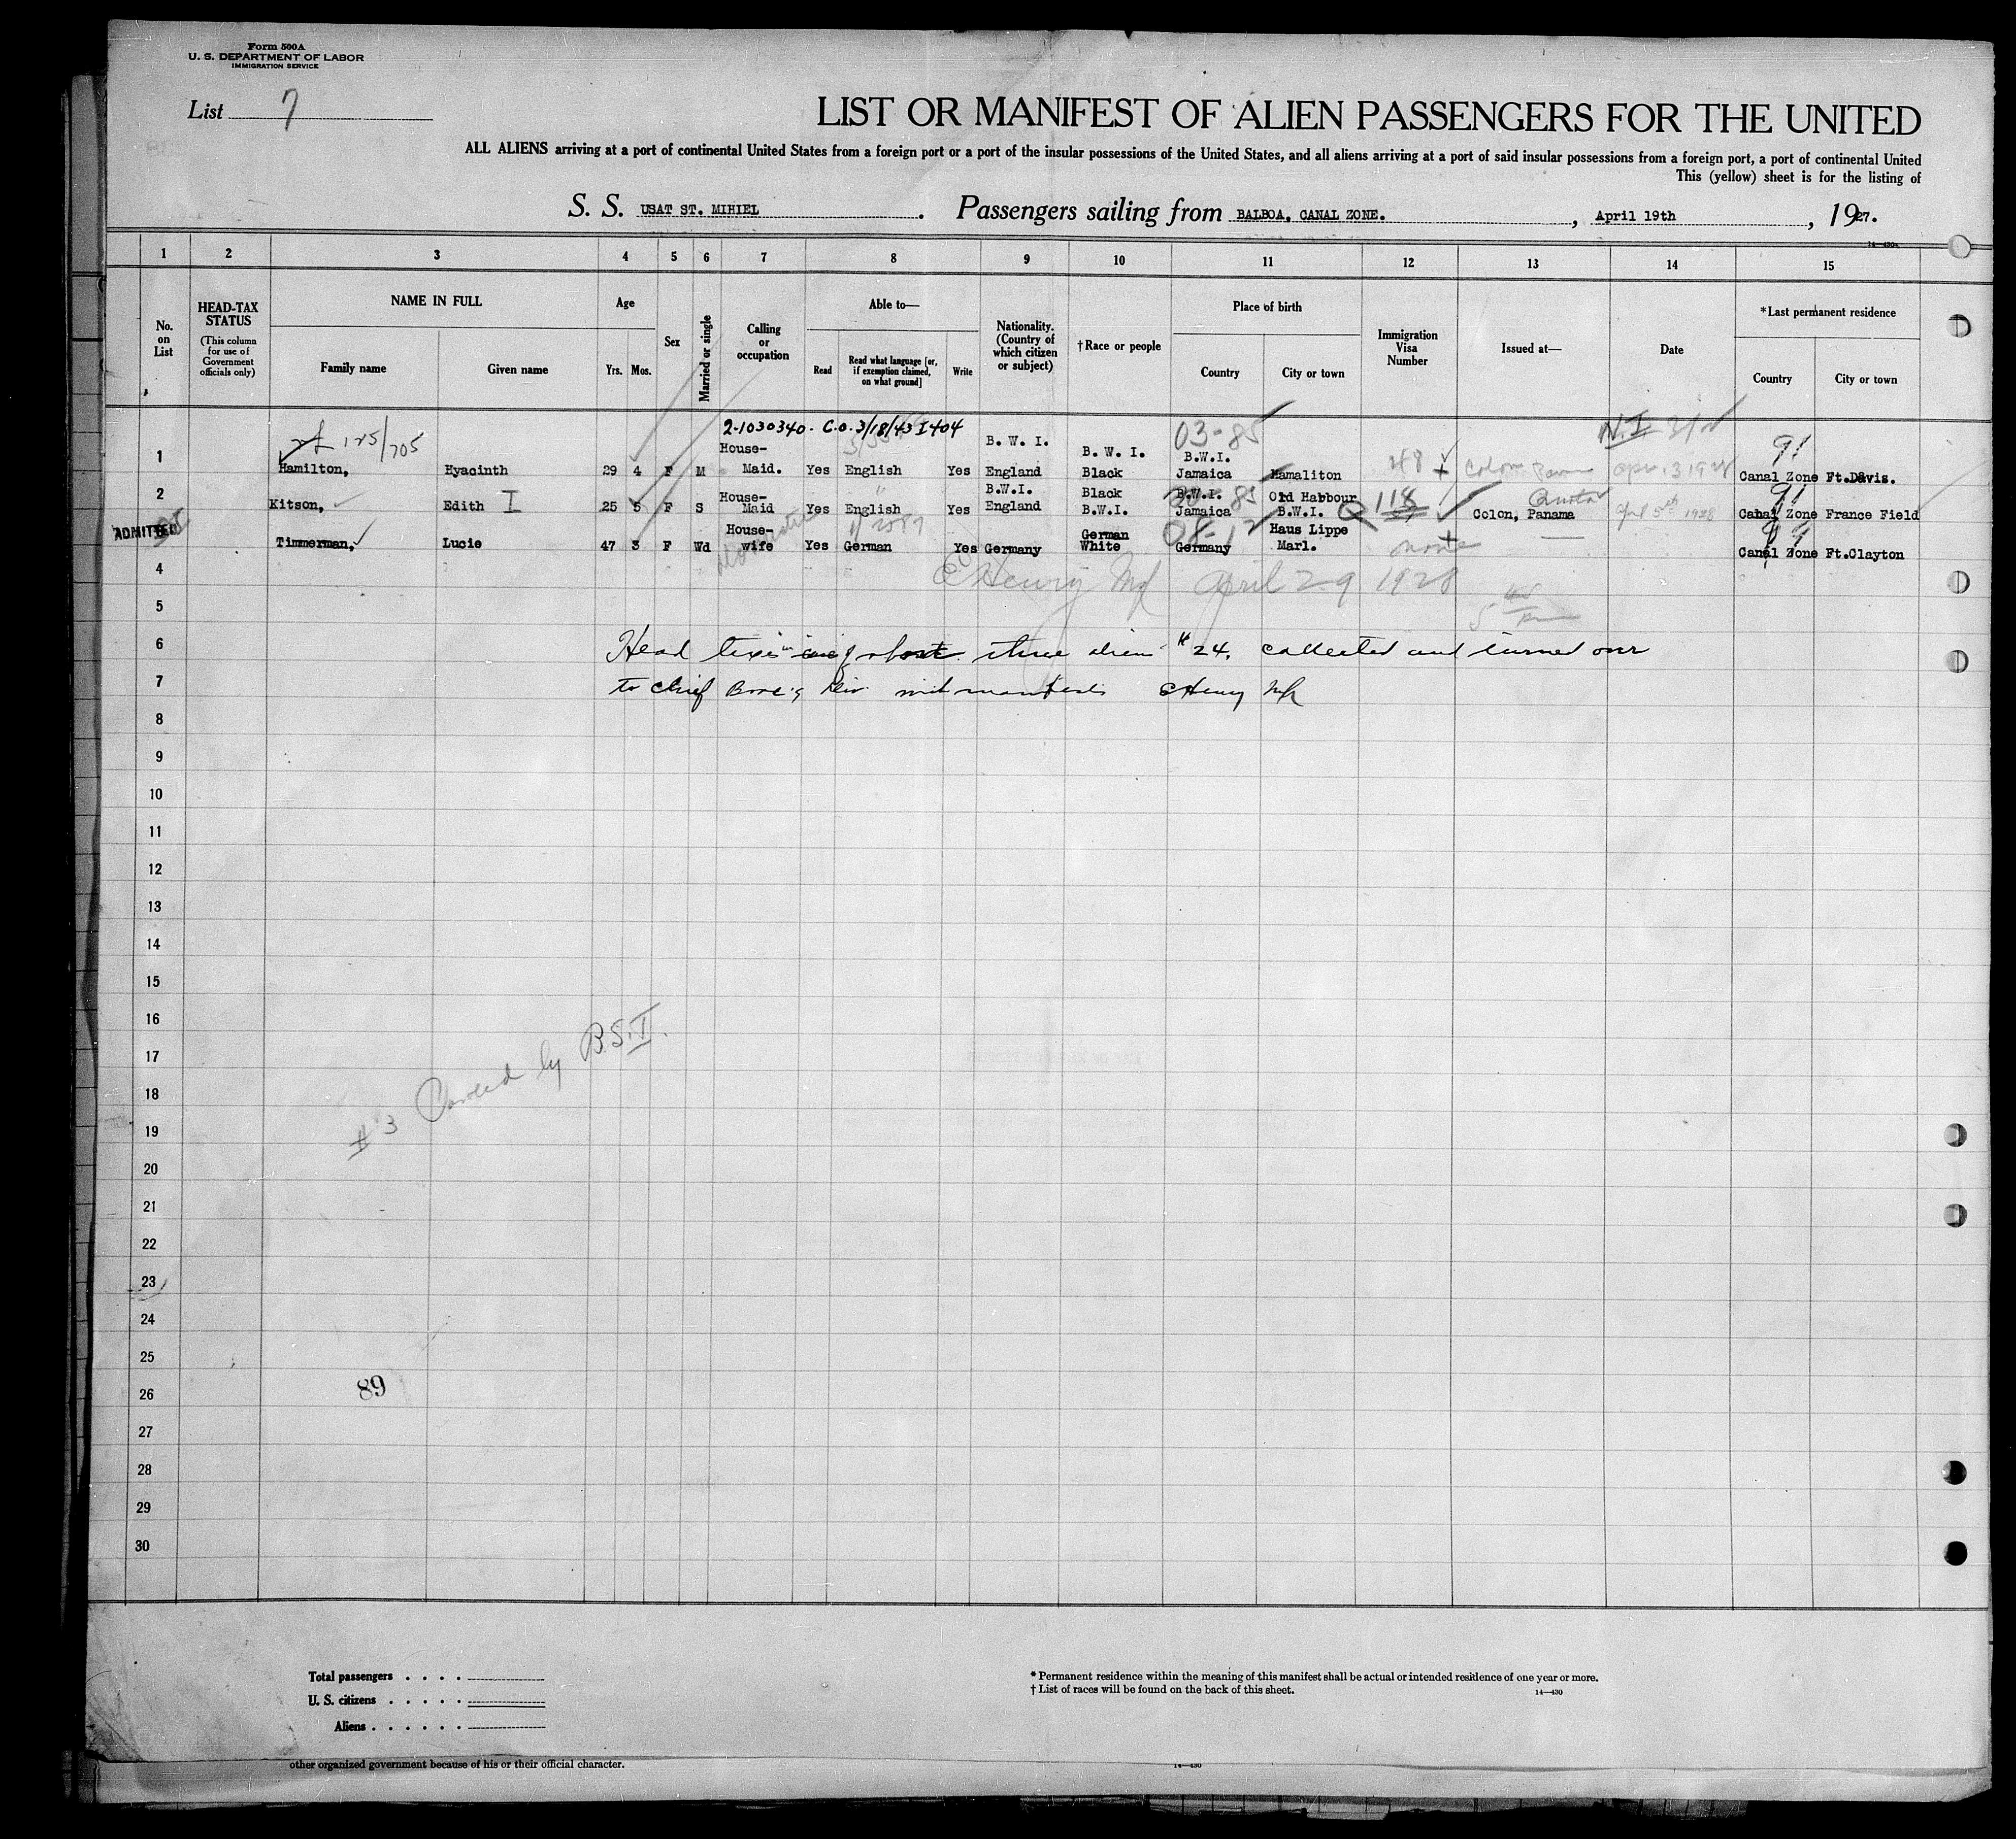 Form 500A
U. S. DEPARTMENT OF LABOR
IMMIGRATION SERVICE
List 7
LIST OR MANIFEST OF ALIEN PASSENGERS FOR THE UNITED
ALL ALIENS arriving at a port of continental United States from a foreign port or a port of the insular possessions of the United States, and all aliens arriving at a port of said insular possessions from a foreign port, a port of continental United
This (yellow) sheet is for the listing of
S. S. USAT ST. MIHIEL. Passengers sailing from BALBOA, CANAL ZONE., April 19th, 1927.
14—430a
1 2 3 4 5 6 7 8 9 10 11 12 13 14 15
No. on List
HEAD-TAX STATUS
(This column for use of Government officials only)
NAME IN FULL
Family name Given name
Age
Yrs. Mos.
Sex
Married or single
Calling or occupation
Able to—
Read Read what language [or, if exemption claimed, on what ground] Write
Nationality. (Country of which citizen or subject)
†Race or people
Place of birth
Country City or town
Immigration Visa Number
Issued at—
Date
*Last permanent residence
Country City or town
125/705 2-1030340- C.O. 3/18/43 I404 03-85 N.I 91
1 Hamilton, Hyacinth 29 4 F M House-Maid. Yes English Yes B. W. I. England B. W. I. Black B.W.I. Jamaica Hamaliton 48 Colon Apr 13 1928 Canal Zone Ft.Davis.
2 Kitson, Edith I 25 5 F S House-Maid Yes English Yes B.W.I. England Black B.W.I. B.W.I. Jamaica 85 Old Habbour B.W.I. Q 118 Colon, Panama Quota Apl 5th 1928 91 Canal Zone France Field
ADMITTED Timmerman, Lucie 47 3 F Wd House-wife Yes German Yes Germany German White 08-1 Germany Haus Lippe Marl. none Canal Zone Ft.Clayton
4 Henry April 29 1928
5
6 Head three alien 24. collected and turned over
7 to chief Div. Henry
8
9
10
11
12
13
14
15
16
17
18
19
# 3 by B.S.I.
20
21
22
23
24
25
26
89
27
28
29
30
Total passengers . . . .
U. S. citizens . . . . .
Aliens . . . . . .
* Permanent residence within the meaning of this manifest shall be actual or intended residence of one year or more.
† List of races will be found on the back of this sheet. 14—430
other organized government because of his or their official character. 14—430